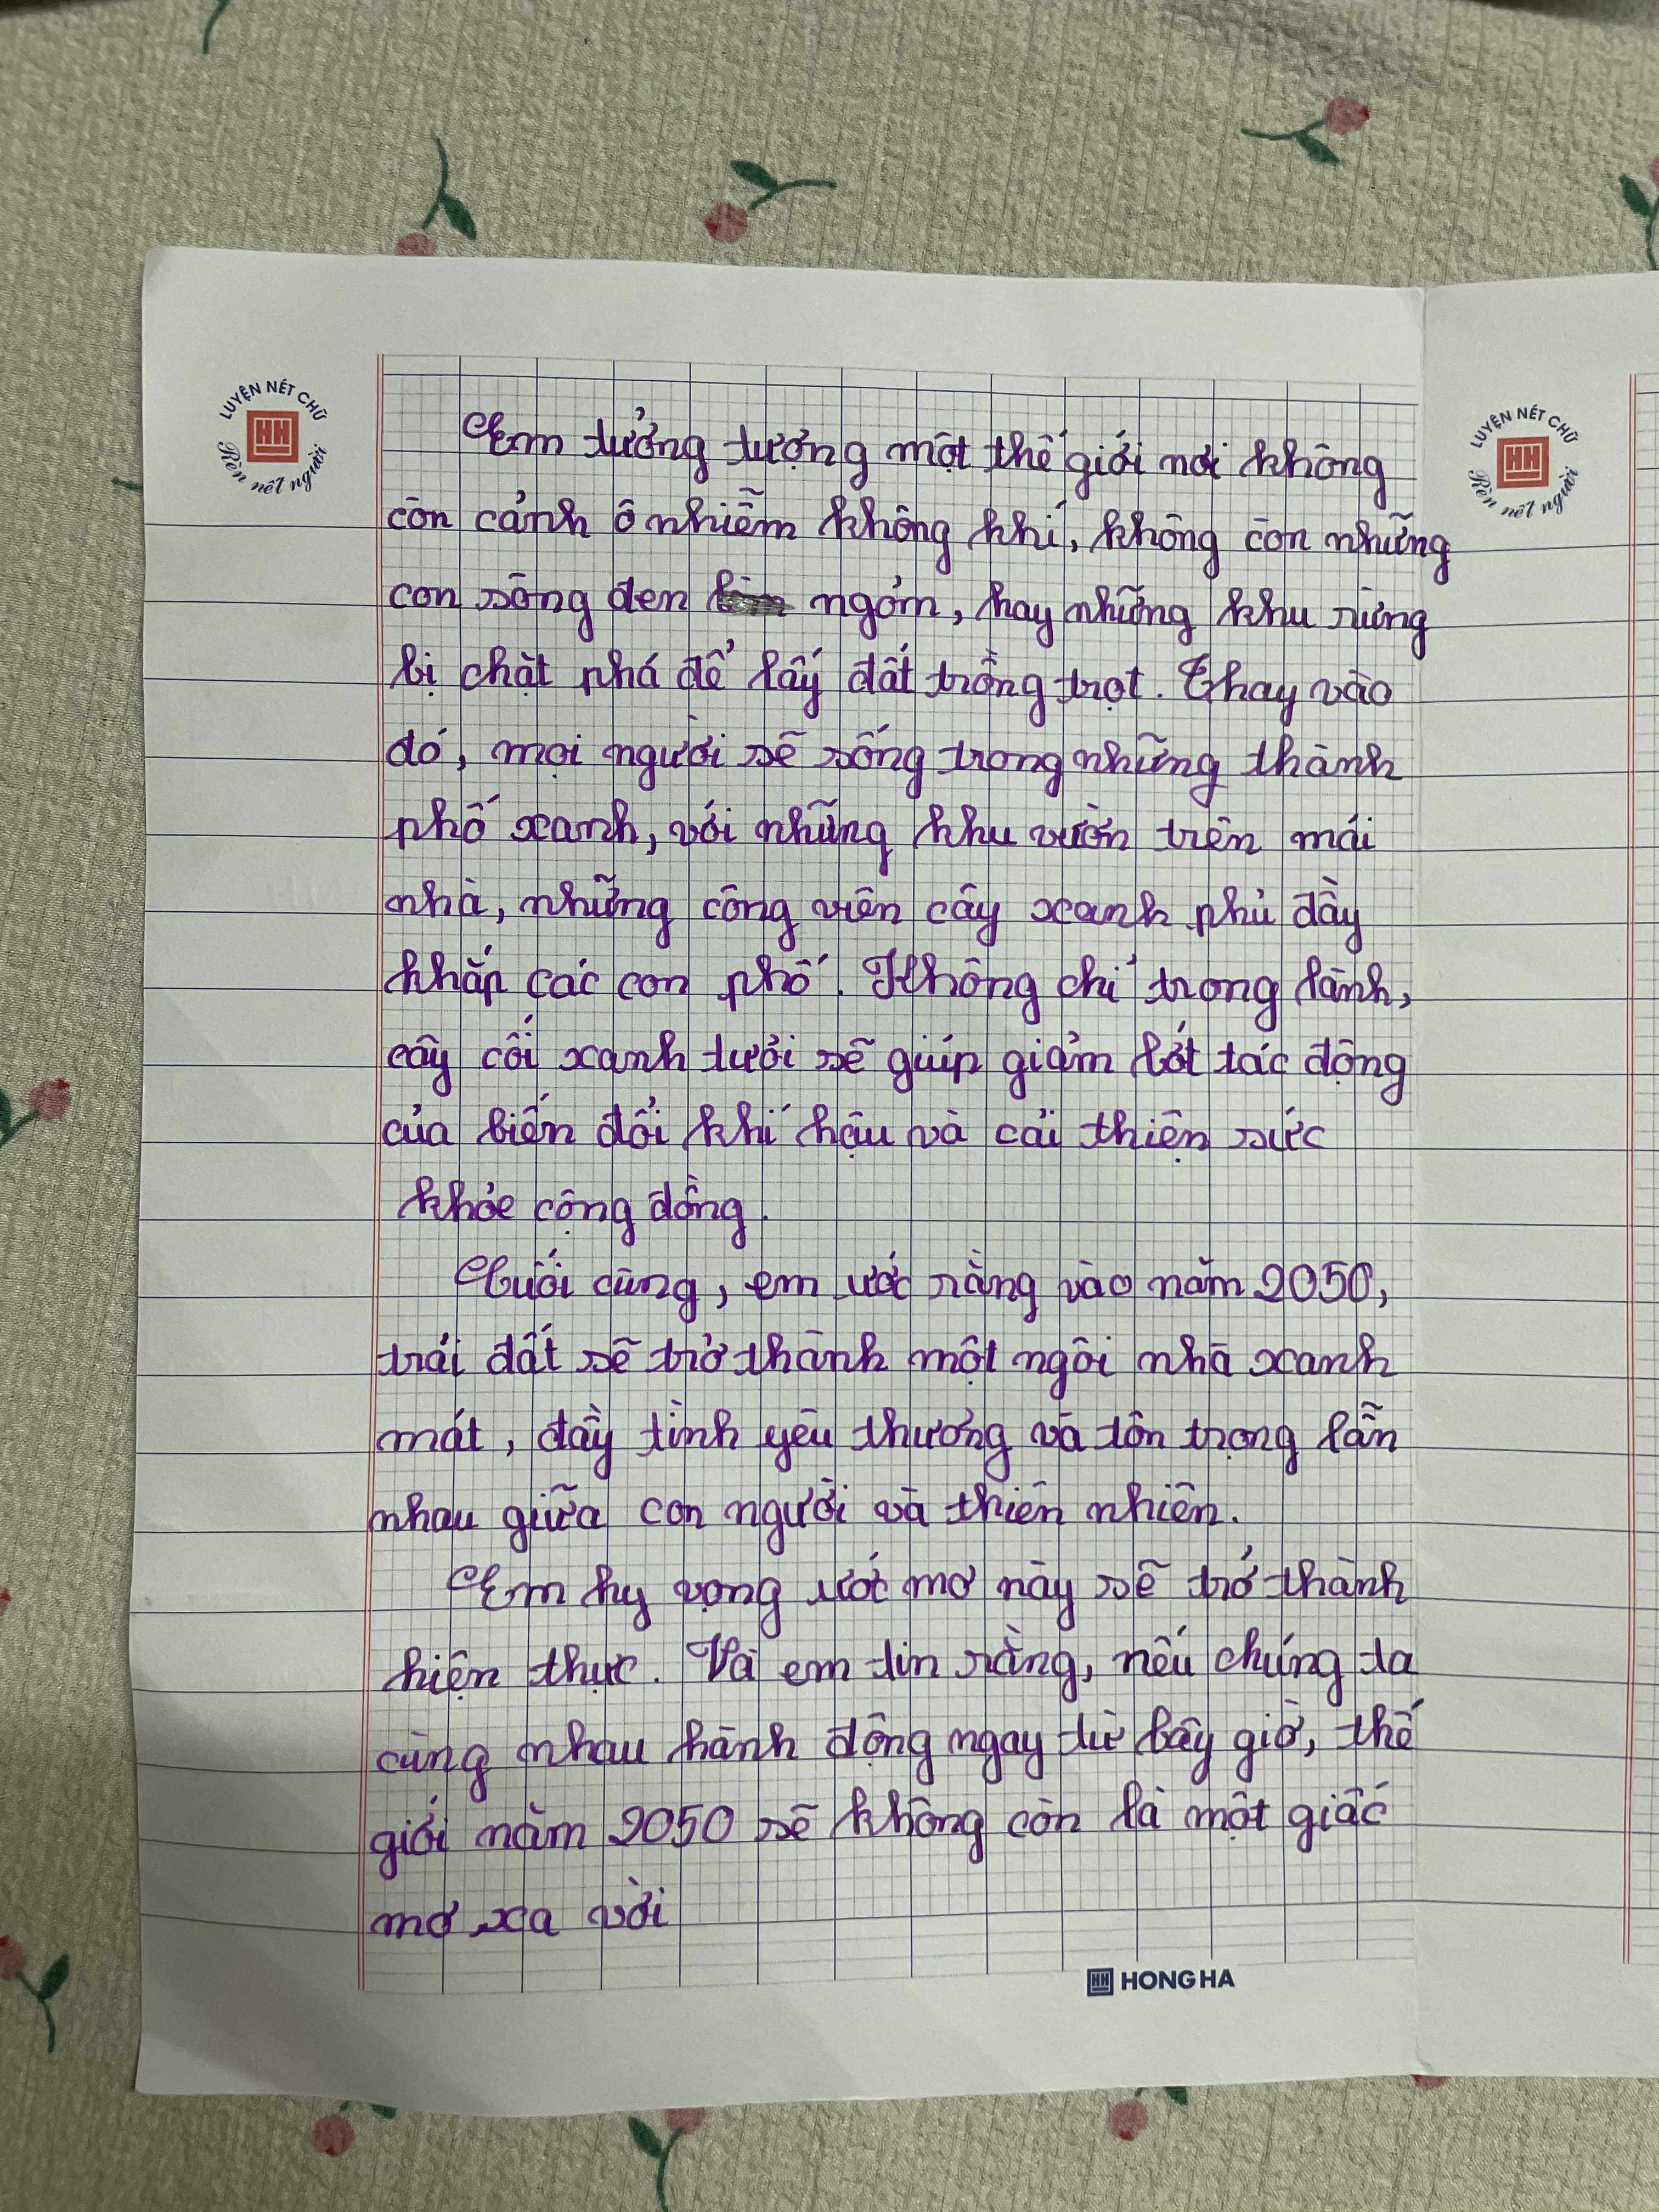 LUYỆN NÉT CHỮ
HH
Rèn nết người
LUYỆN NÉT CHỮ
HH
Rèn nết người
Em tưởng tượng một thế giới nơi không
còn cảnh ô nhiễm không khí, không còn những
con sông đen ngỏm, hay những khu rừng
bị chặt phá để lấy đất trồng trọt. Thay vào
đó, mọi người sẽ sống trong những thành
phố xanh, với những khu vườn trên mái
nhà, những công viên cây xanh phủ đầy
khắp các con phố. Không chỉ trong lành,
cây cối xanh tươi sẽ giúp giảm bớt tác động
của biến đổi khí hậu và cải thiện sức
khỏe cộng đồng.
Cuối cùng, em ước rằng vào năm 2050,
trái đất sẽ trở thành một ngôi nhà xanh
mát, đầy tình yêu thương và tôn trọng lẫn
nhau giữa con người và thiên nhiên.
Em hy vọng ước mơ này sẽ trở thành
hiện thực. Và em tin rằng, nếu chúng ta
cùng nhau hành động ngay từ bây giờ, thế
giới năm 2050 sẽ không còn là một giấc
mơ xa vời
HH HONG HA